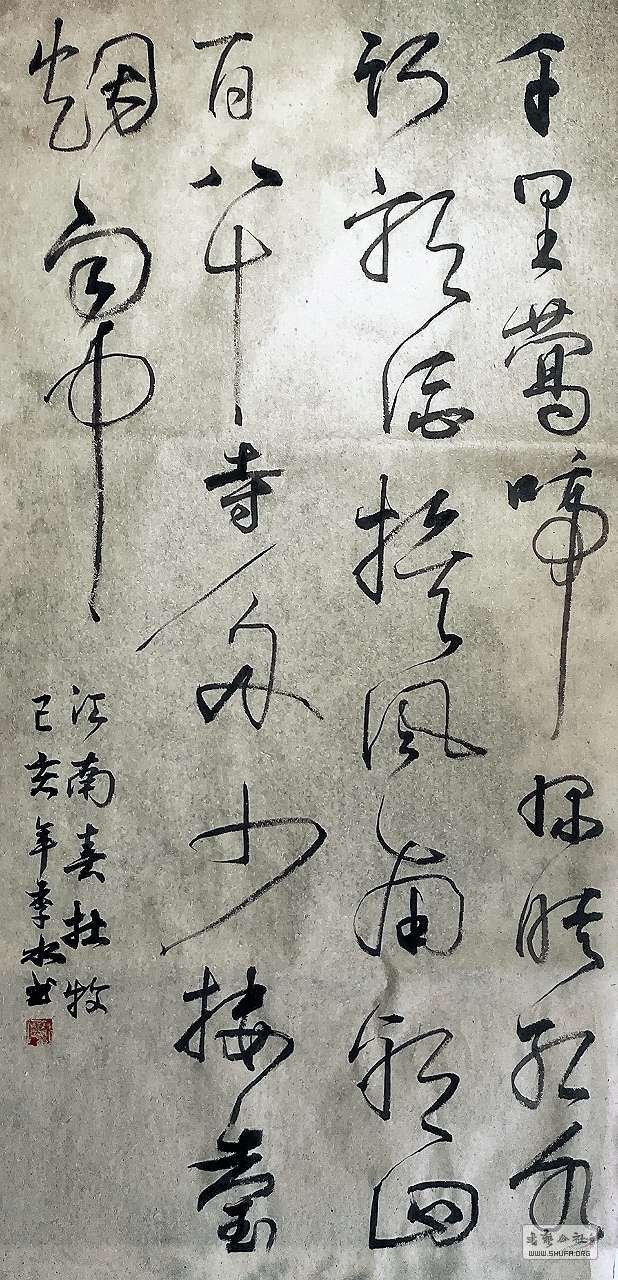 千里鶯啼绿映红水
村郭酒旗風南朝四
百八十寺多少楼臺
烟雨中
江南春杜牧
己亥年李书
書藝公社
WWW.SHUFA.ORG